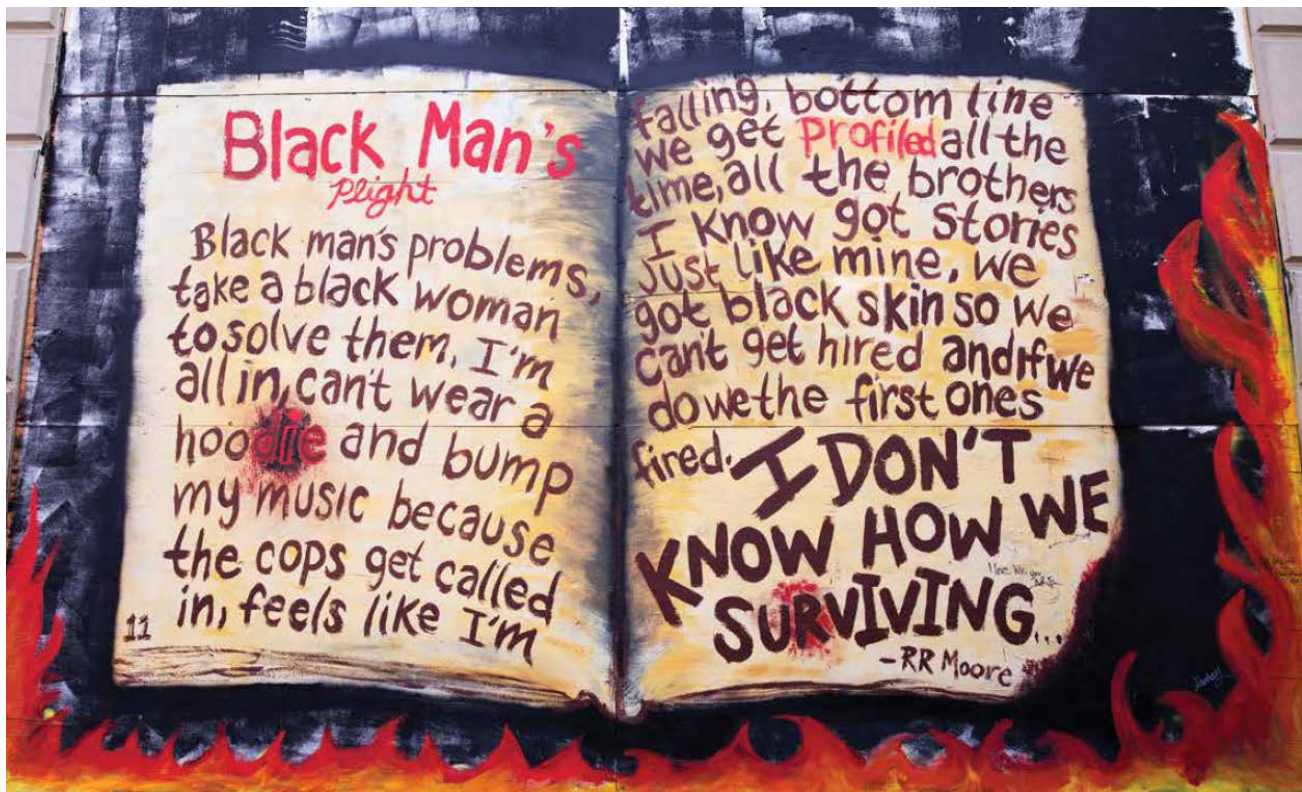 Black Man's
Plight
Black man's problems,
take a black woman
to solve them, I'm
all in, can't wear a
hoodie and bump
my music because
the cops get called
in, feels like I'm
11
falling, bottom line
we get Profiled all the
time, all the brothers
I know got stories
Just like mine, we
got black skin so we
can't get hired and if we
do we the first ones
fired. I DON'T
KNOW HOW WE
SURVIVING...
-RR Moore